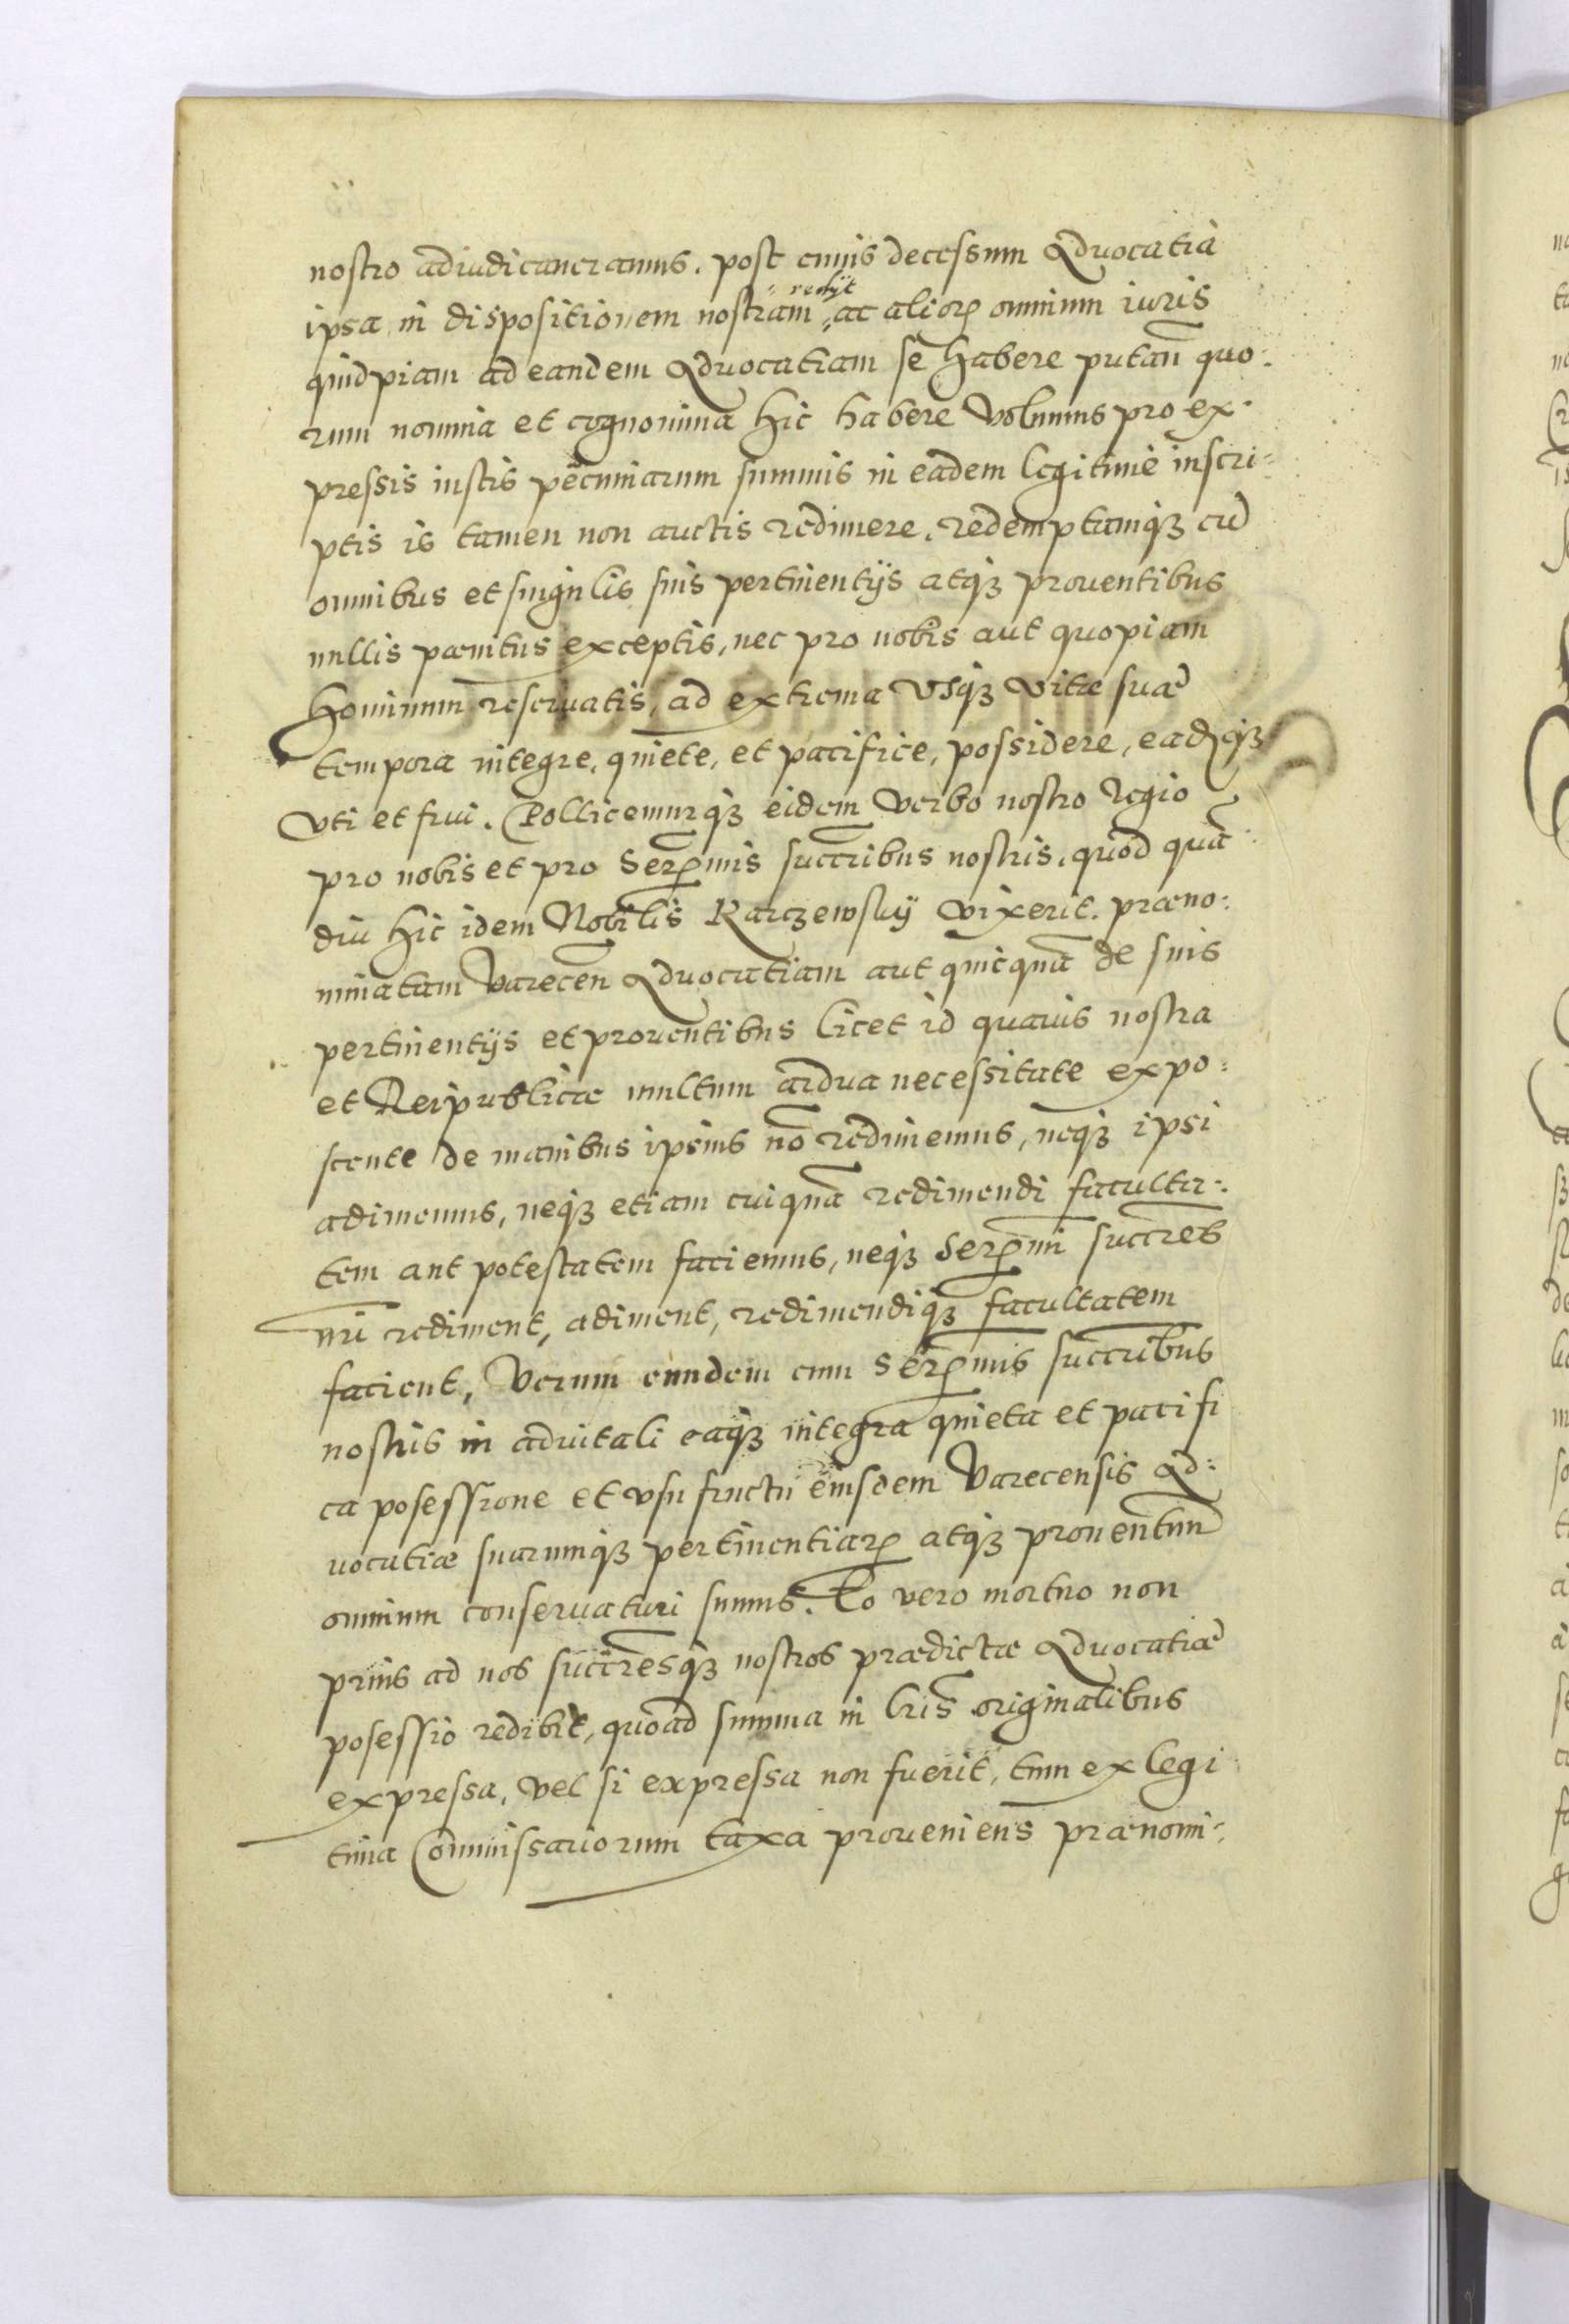 nostro adiudicaueramus. post cuius decessum Aduocatia
ipsa in dispositionem nostram redijt ac aliorꝫ omnium iuris
quidpiam ad eandem Aduocatiam se habere putan̄ quo:
rum nomina et cognomina hic habere volumus pro ex:
pressis iustis pecuniarum summis in eadem legitime inscri:
ptis is tamen non auctis redimere, redemptamqꝫ cū
omnibus et singulis suis pertinentijs atqꝫ prouentibus
nullis pœnitus exceptis, nec pro nobis aut quopiam
hominum reseruatis, ad extrema vsqꝫ vitæ suæ
tempora integre, quiete, et pacifice, possidere, eadqꝫ
vti et frui. Pollicemurqꝫ eidem verbo nostro Regio
pro nobis et pro Serm̄is succribus nostris, quod quā
diu hic idem Nobilis Karczewskij vixerit. præno:
minatam Varecen̄ Aduocatiam aut quicquā de suis
pertinentijs et prouentibus licet id quauis nostra
et Reipublicæ multum ardua necessitate expo:
scente de manibus ipsius nō redimemus, neqꝫ ipsi
adimemus, neqꝫ etiam cuiquā redimendi faculta:
tem aut potestatem faciemus, neqꝫ Serm̄i succres
nr̄i rediment, adiment, redimendiqꝫ facultatem
facient, verum eundem cum Serm̄is succribus
nostris in aduitali eaqꝫ integra quieta et pacifi
ca posessione et vsufructu eiusdem Varecensis Ad:
uocatiæ suarumqꝫ pertinentiarꝫ atqꝫ prouentuū
omnium conseruaturi sumus. Eo vero mortuo non
prius ad nos succresqꝫ nostros prædictæ Aduocatiæ
posessio redibit, quoad summa in lris̄ originalibus
expressa, vel si expressa non fuerit, tum ex legi
tima Commissariorum taxa proueniens prænomi: